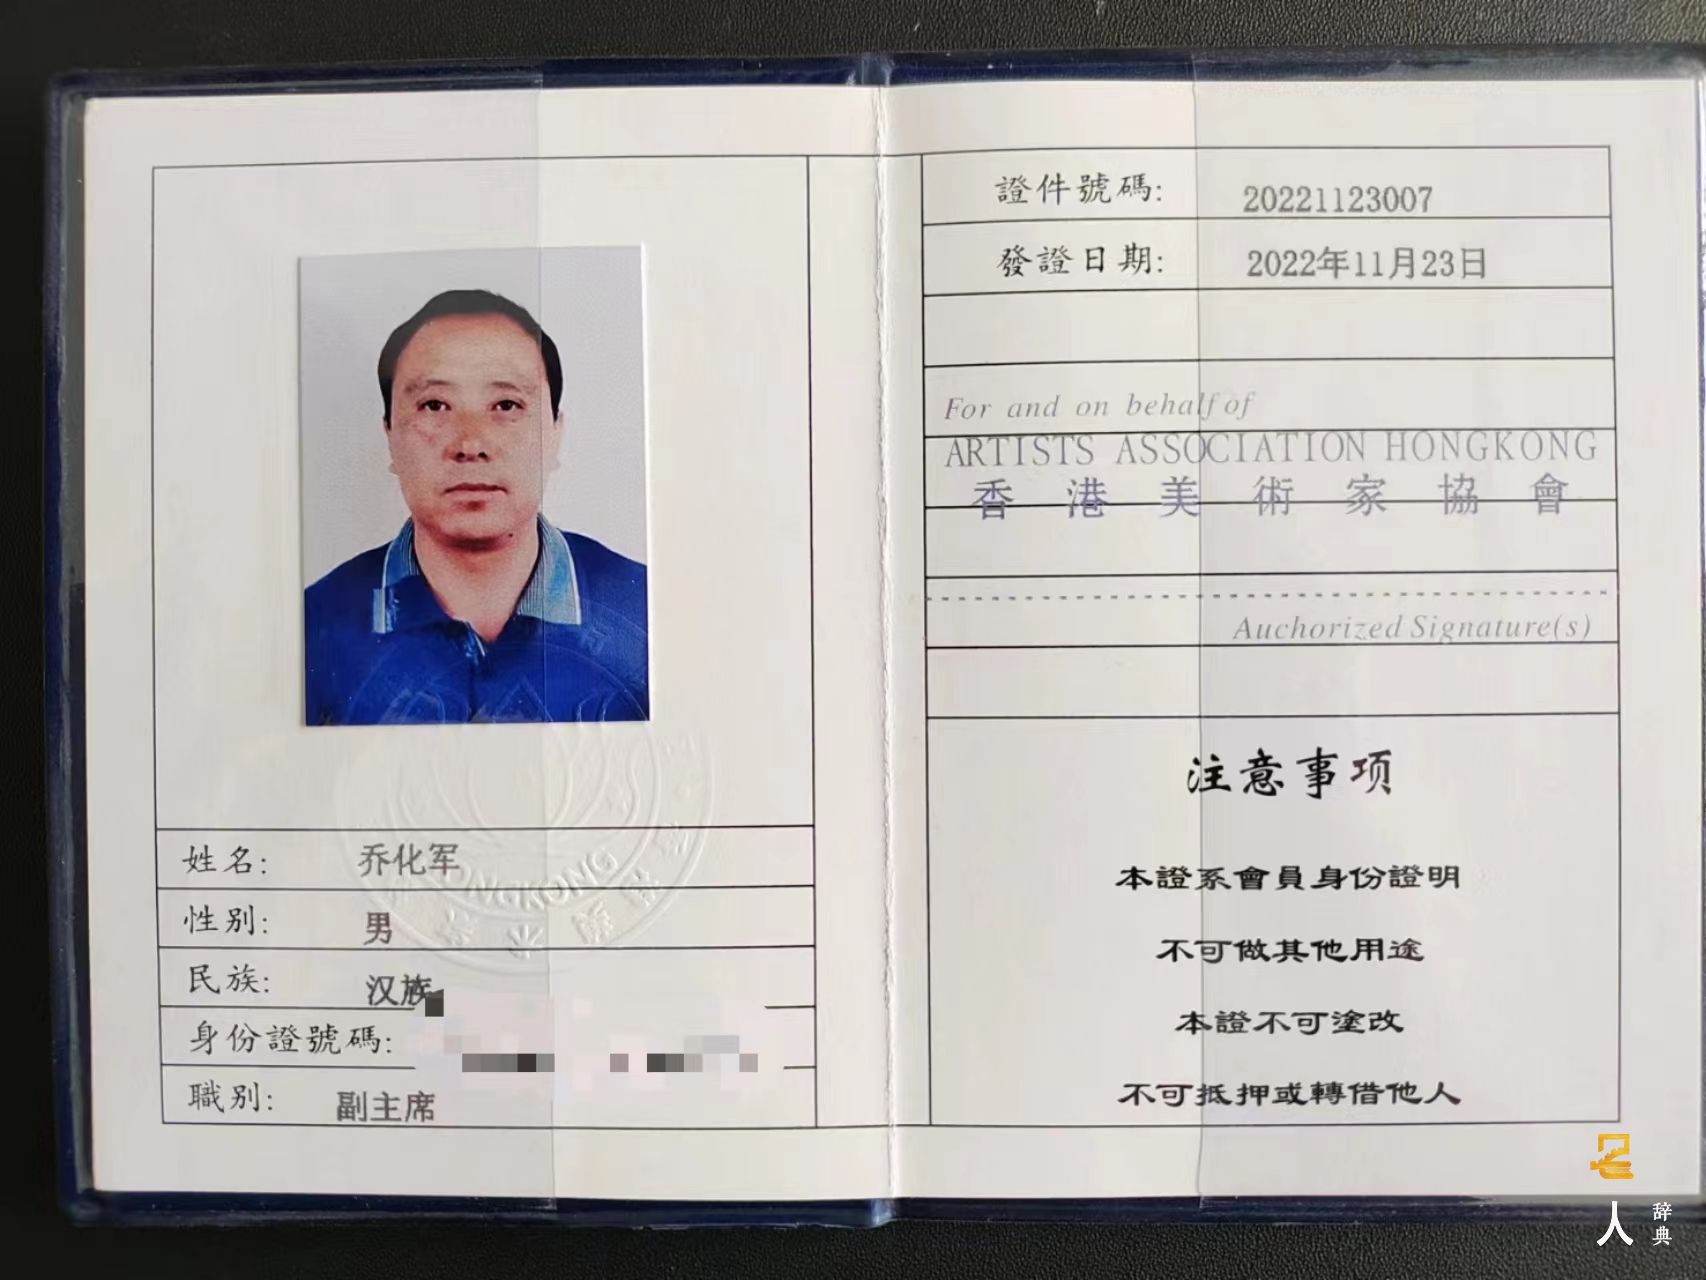 姓名: 乔化军
性别: 男
民族: 汉族
身份證號碼:
職別: 副主席
證件號碼: 20221123007
發證日期: 2022年11月23日
For and on behalf of
ARTISTS ASSOCIATION HONGKONG
香港美術家協會
Auchorized Signature(s)
注意事项
本證系會員身份證明
不可做其他用途
本證不可塗改
不可抵押或轉借他人
HONGKONG
人
辞典